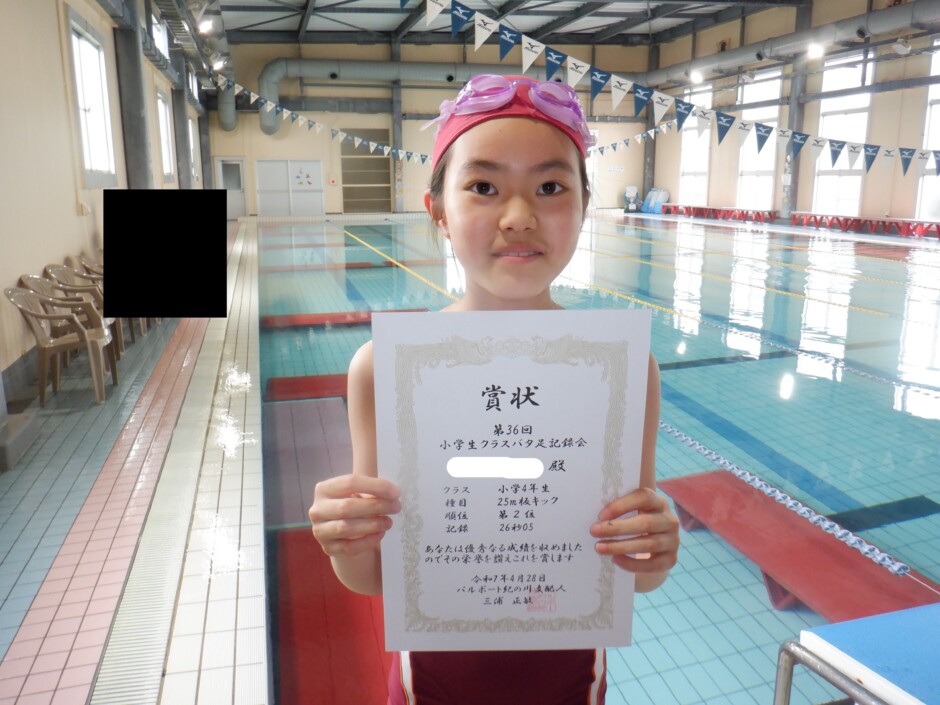 賞状
第36回
小学生クラスバタ足記録会
殿
クラス 小学4年生
種目 25m板キック
順位 第2位
記録 26秒05
あなたは優秀なる成績を収めました
のでその栄誉を讃えこれを賞します
令和7年4月28日
パルポート紀の川支配人
三浦 正敏